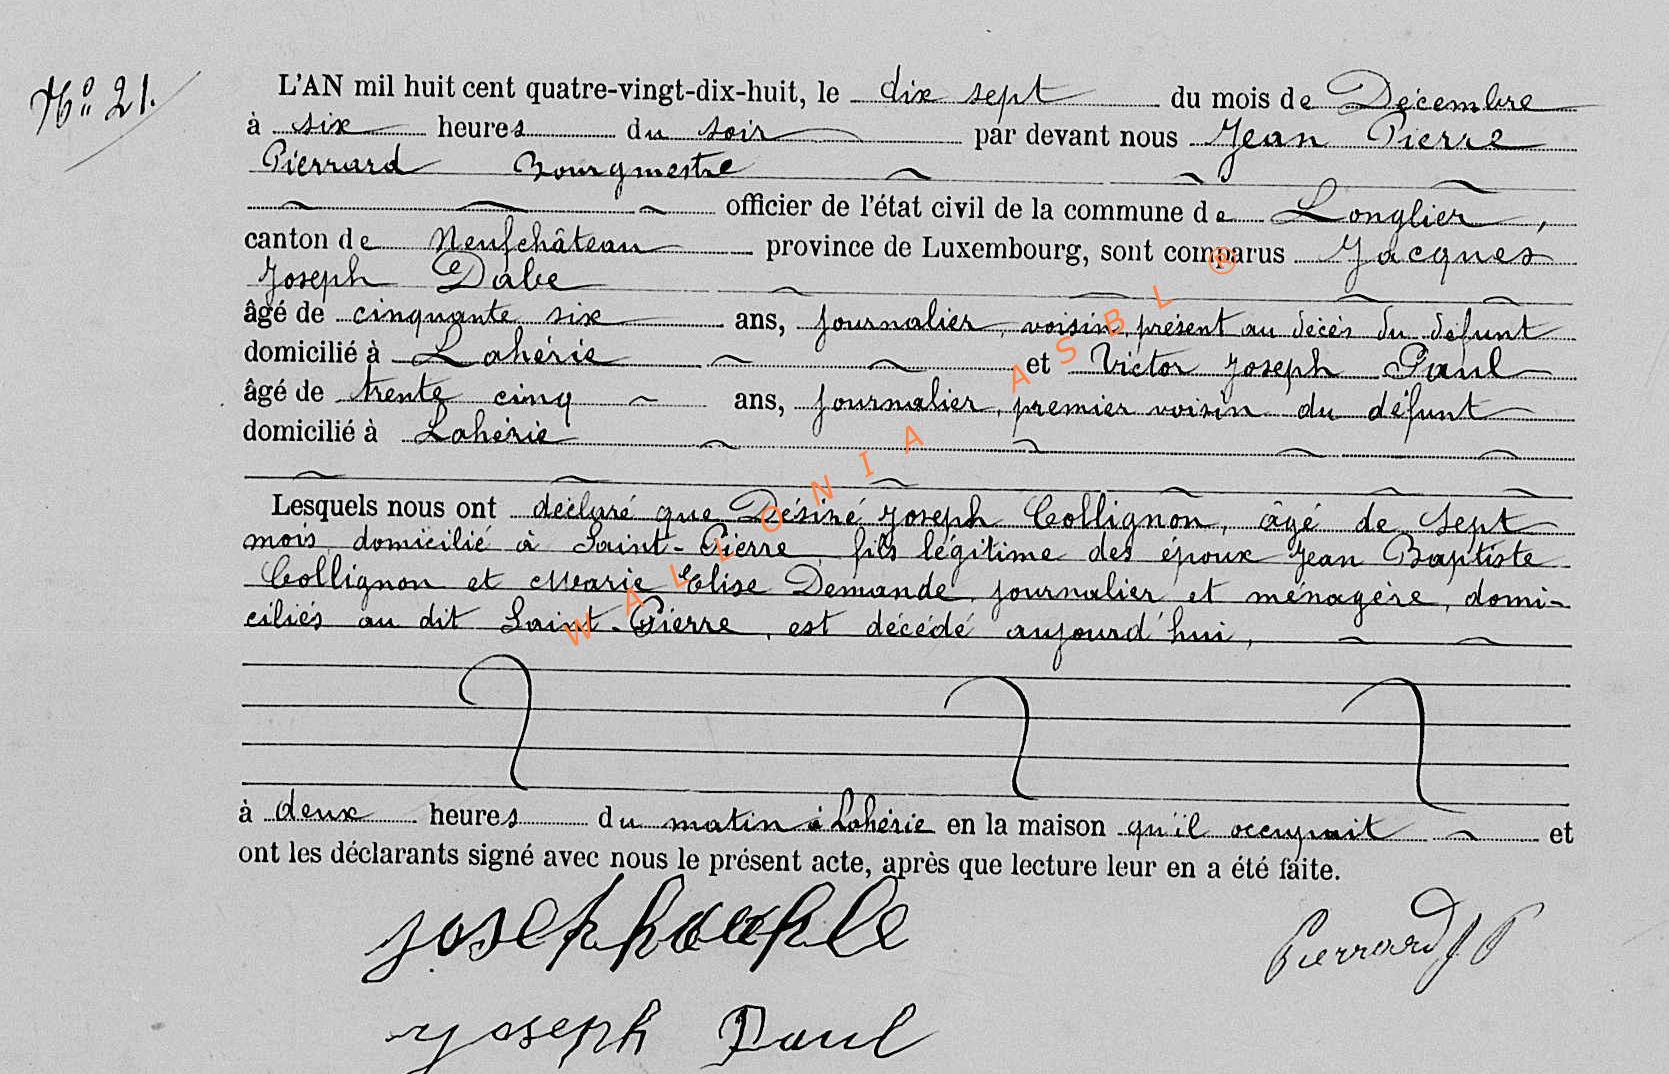 No 21.
L'AN mil huit cent quatre-vingt-dix-huit, le dix sept du mois de Décembre
à six heures du soir par devant nous Jean Pierre
Pierrard Bourgmestre
officier de l'état civil de la commune de Longlier,
canton de Neufchâteau province de Luxembourg, sont comparus Jacques
Joseph Dabe
âgé de cinquante six ans, journalier, voisin, présent au décès du défunt
domicilié à Lahérie et Victor Joseph Paul
âgé de trente cinq ans, journalier, premier voisin du défunt
domicilié à Lahérie
Lesquels nous ont déclaré que Désiré Joseph Collignon, âgé de sept
mois, domicilié à Saint-Pierre fils légitime des époux Jean Baptiste
Collignon et Marie Elise Demande, journalier et ménagère, domi-
ciliés au dit Saint-Pierre, est décédé aujourd'hui,
à deux heures du matin à Lahérie en la maison qu'il occupait et
ont les déclarants signé avec nous le présent acte, après que lecture leur en a été faite.
Pierrard J P
Joseph Paul
WALLONIA ASBL ®